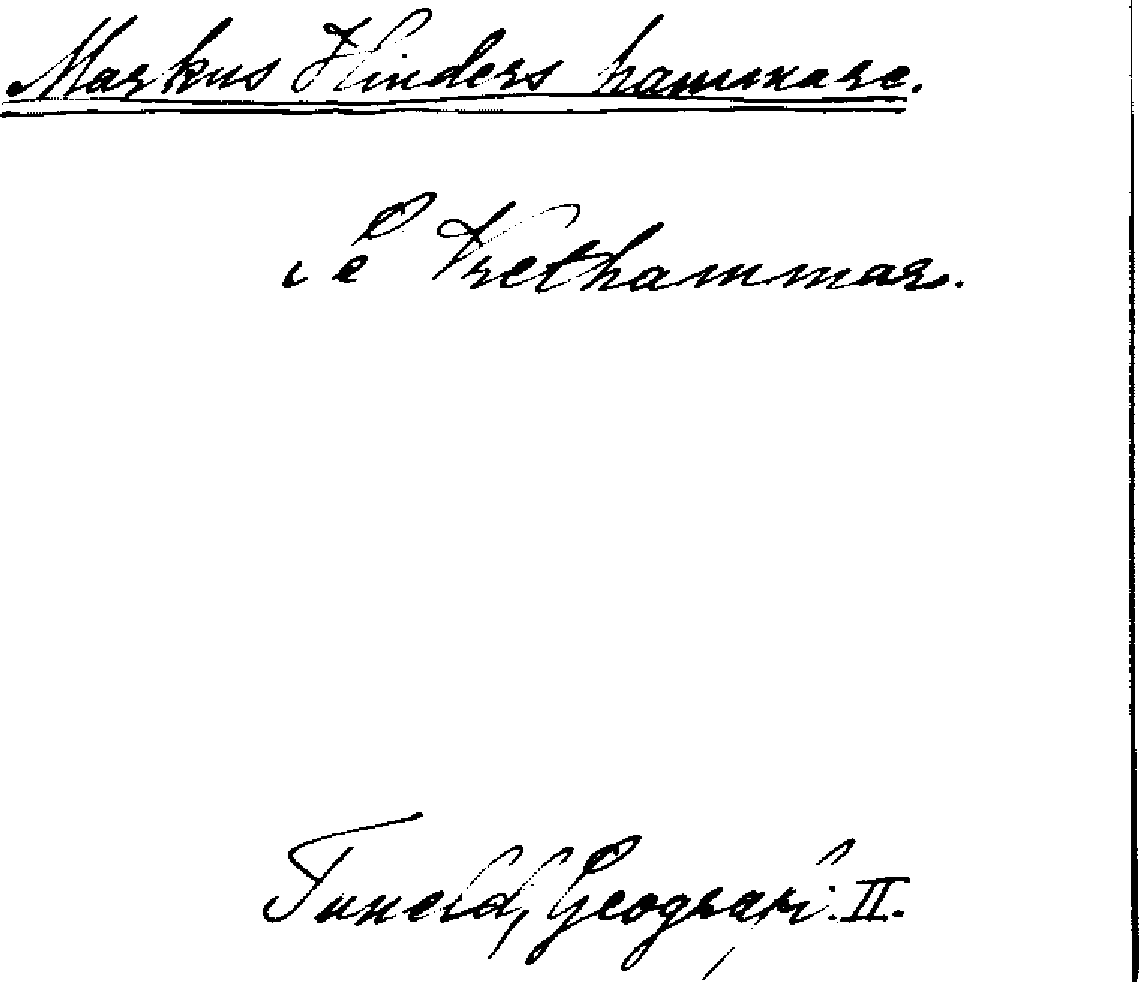 Markus Hinders hammare.
Se Vrethammar.
Tuneld, Geografi. II.